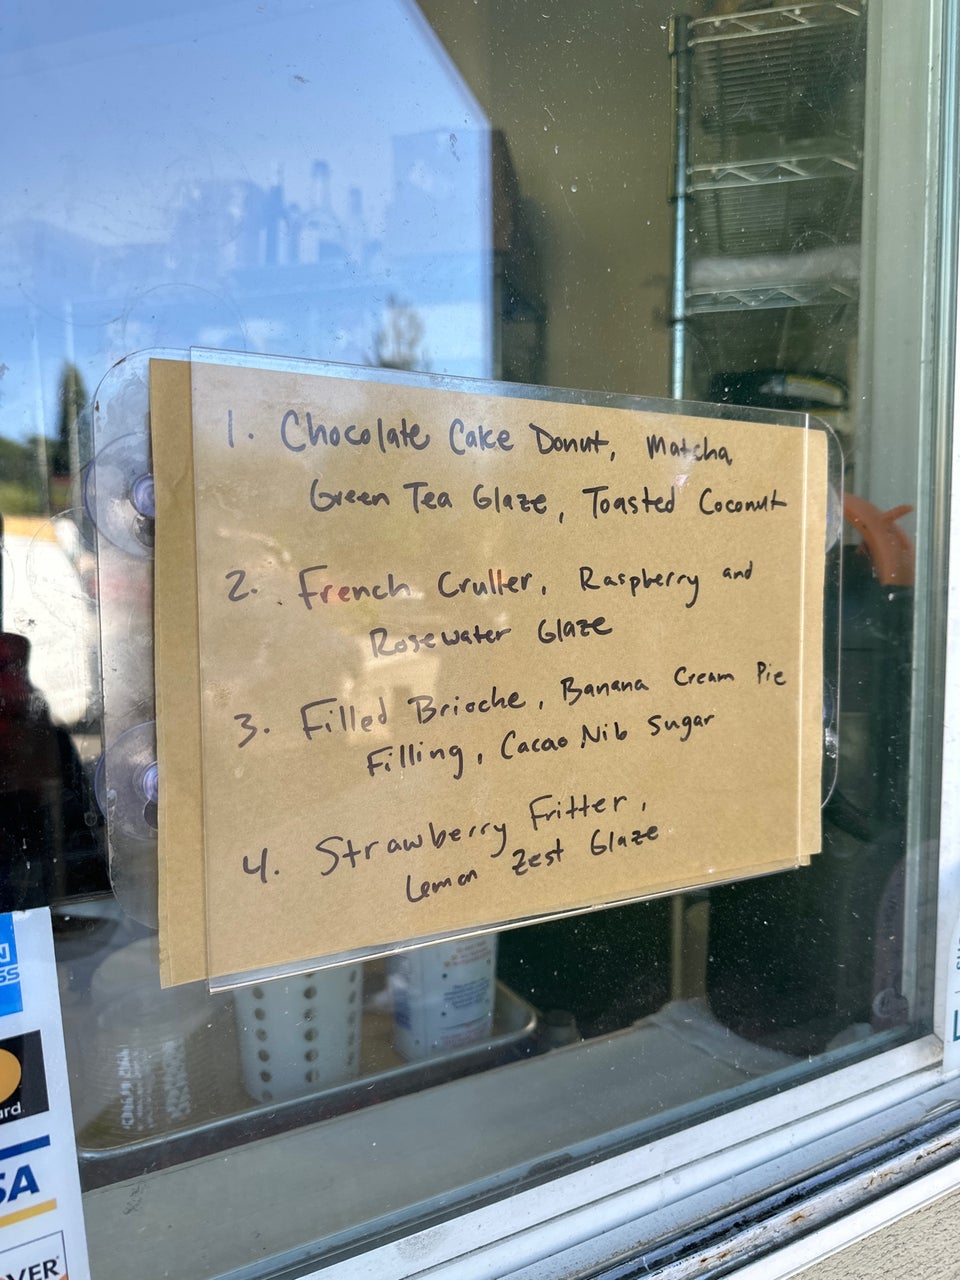 1. Chocolate Cake Donut, Matcha
Green Tea Glaze, Toasted Coconut
2. French Cruller, Raspberry and
Rosewater Glaze
3. Filled Brioche, Banana Cream Pie
Filling, Cacao Nib Sugar
4. Strawberry Fritter,
Lemon Zest Glaze